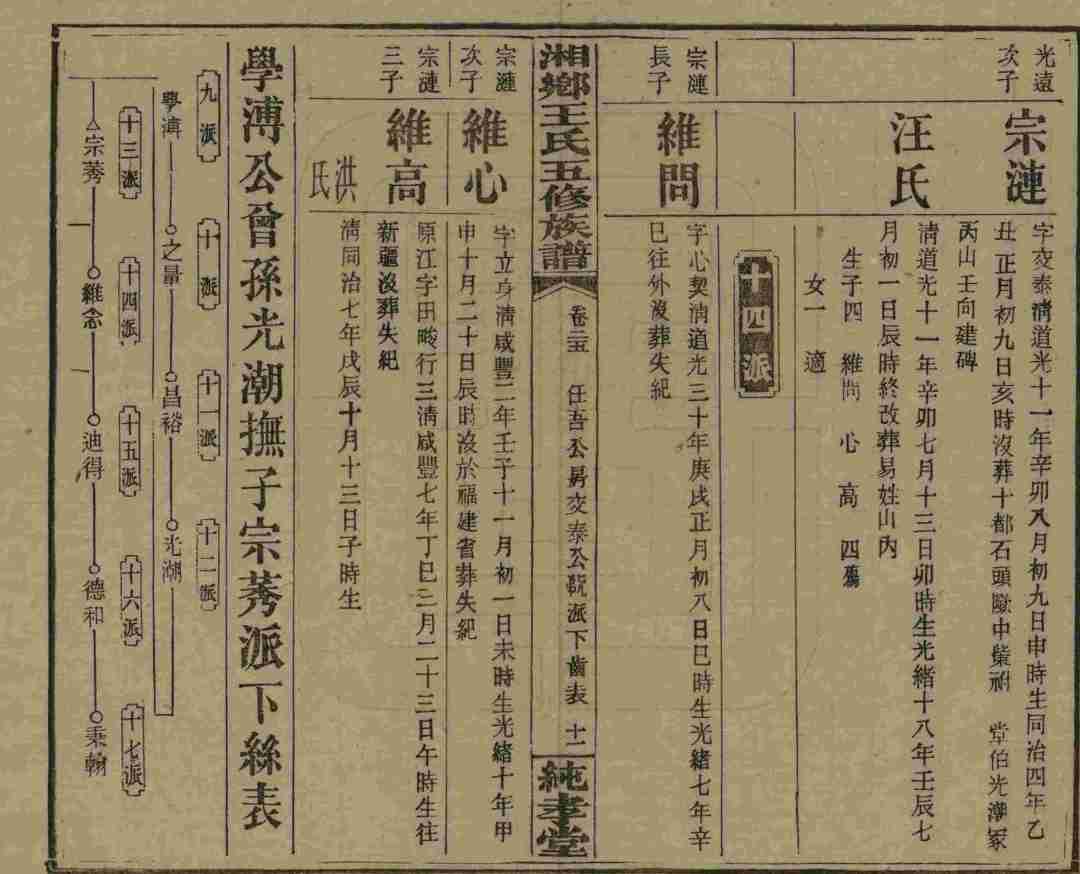 光遠
次子
宗漣
字交泰清道光十一年辛卯八月初九日申時生同治四年乙
丑正月初九日亥時沒葬十都石頭㘭中塋祔　堂伯光潮冢
丙山壬向建碑
汪氏
清道光十一年辛卯七月十三日卯時生光緒十八年壬辰七
月初一日辰時終改葬易姓山內
生子四　維問　心　高　四殤
女一　適
十四派
宗漣
長子
維問
字心契清道光三十年庚戌正月初八日巳時生光緒七年辛
巳往外沒葬失紀
湘鄉王氏五修族譜
卷二五　任吾公房交泰公號派下齒表　十一
純孝堂
宗漣
次子
維心
字立身清咸豐二年壬子十一月初一日未時生光緒十年甲
申十月二十日辰時沒於福建省葬失紀
宗漣
三子
維高
原江字田畯行三清咸豐七年丁巳二月二十三日午時生往
新疆沒葬失紀
洪氏
清同治七年戊辰十月十三日子時生
學溥公曾孫光潮撫子宗莠派下絲表
九派
十派
十一派
十二派
學溥
之量
昌裕
光潮
十三派
十四派
十五派
十六派
十七派
宗莠
維念
迪得
德和
秉翰